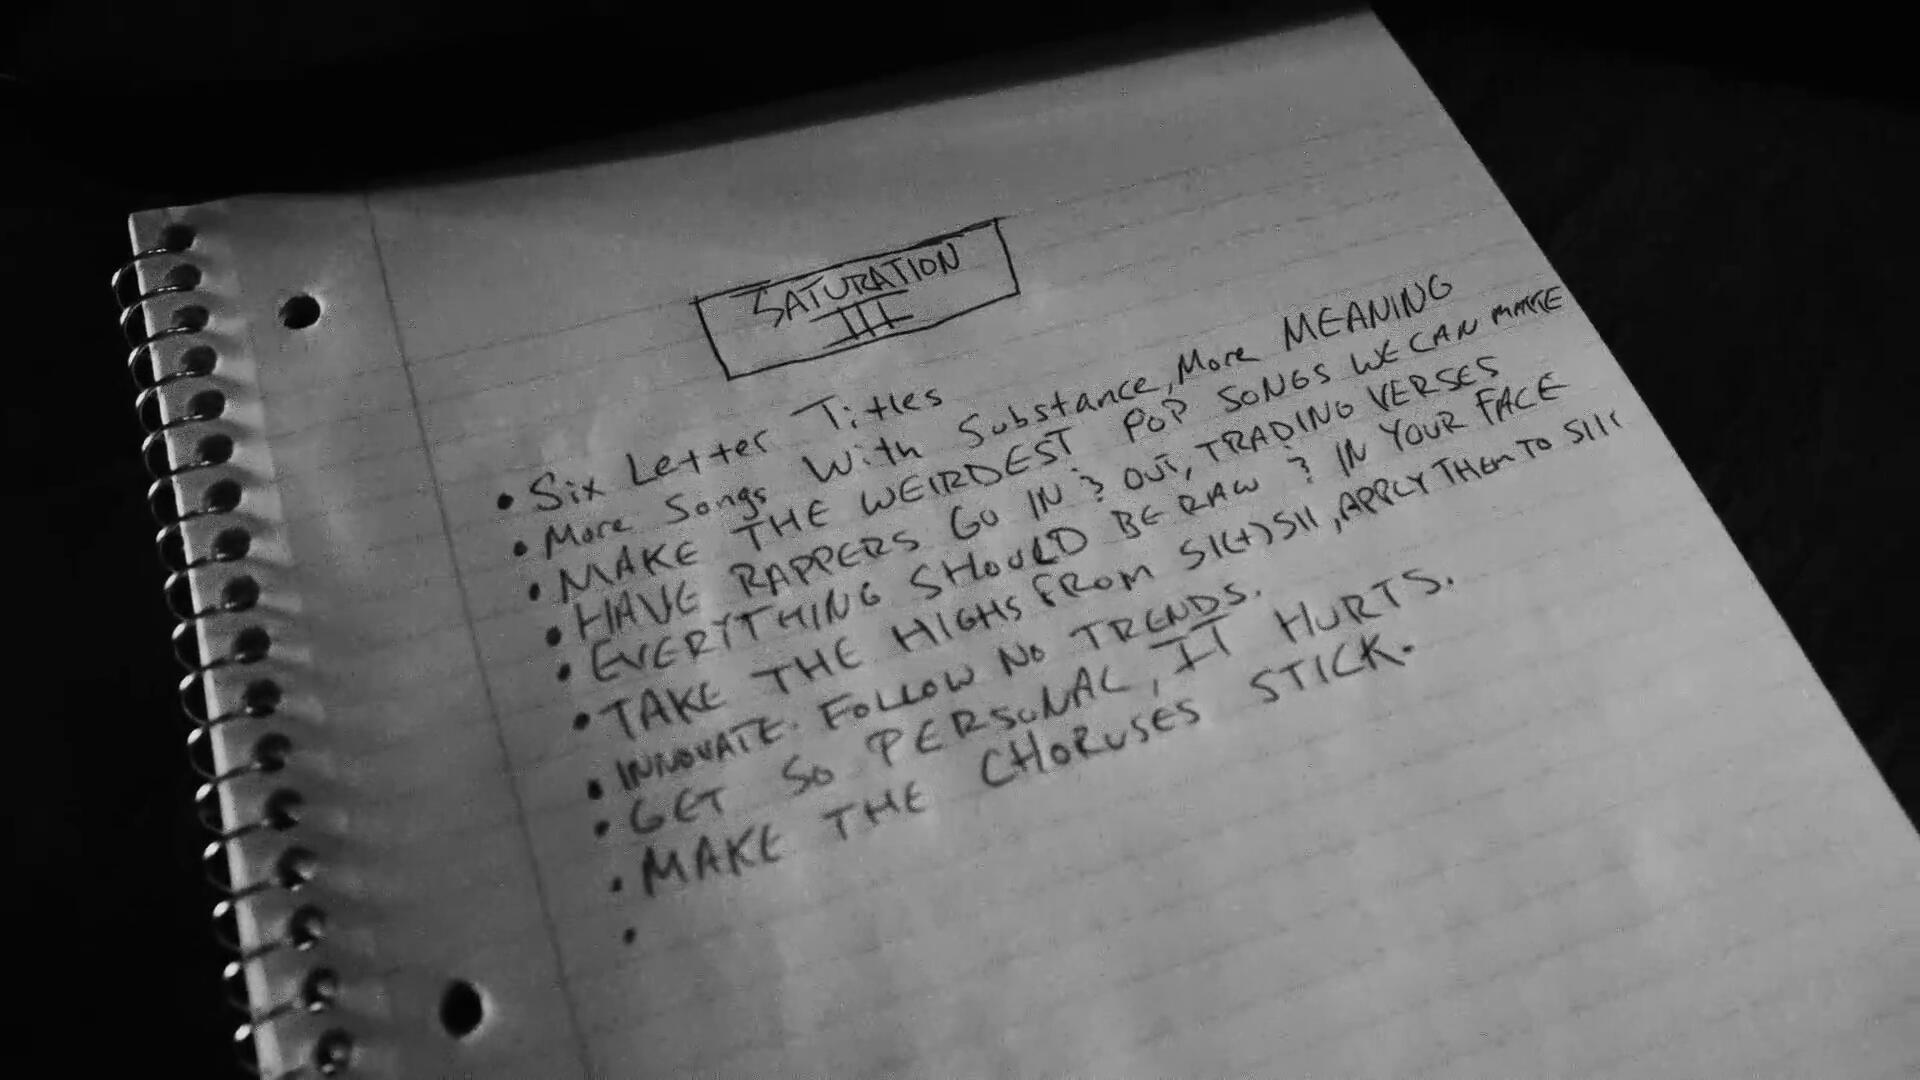 SATURATION
III
• Six Letter Titles
• More Songs With Substance, More MEANING
• MAKE THE WEIRDEST POP SONGS WE CAN MAKE
• HAVE RAPPERS GO IN & OUT, TRADING VERSES
• EVERYTHING SHOULD BE RAW & IN YOUR FACE
• TAKE THE HIGHS FROM SI(+)SII, APPLY THEM TO SIII
• INNOVATE. FOLLOW NO TRENDS.
• GET SO PERSONAL, IT HURTS.
• MAKE THE CHORUSES STICK.
•